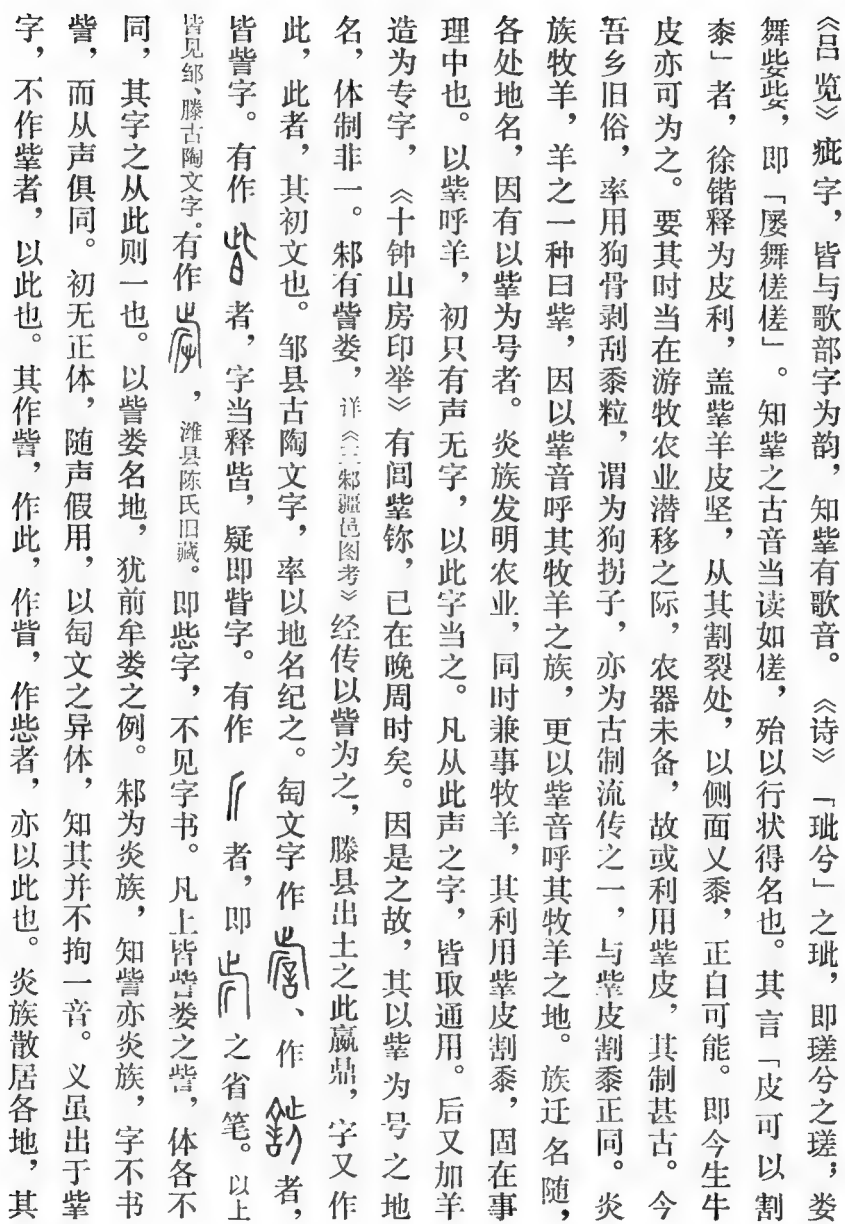 《吕览》疵字，皆与歌部字为韵，知㧗有歌音。《诗》「玼兮」之玼，即瑳兮之瑳；娄
舞姕姕，即「屡舞傞傞」。知羍之古音当读如傞，殆以行状得名也。其言「皮可以割
黍」者，徐锴释为皮利，盖羊皮坚，从其割裂处，以侧面乂黍，正自可能。即今生牛
皮亦可为之。要其时当在游牧农业潜移之际，农器未备，故或利用皮，其制甚古。今
吾乡旧俗，率用狗骨剥刮黍粒，谓为狗拐子，亦为古制流传之一，与皮割黍正同。炎
族牧羊，羊之一种曰，因以音呼其牧羊之族，更以音呼其牧羊之地。族迁名随，
各处地名，因有以为号者。炎族发明农业，同时兼事牧羊，其利用皮割黍，固在事
理中也。以呼羊，初只有声无字，以此字当之。凡从此声之字，皆取通用。后又加羊
造为专字，《十钟山房印举》有闾鉨，已在晚周时矣。因是之故，其以为号之地
名，体制非一。邾有訾娄，详《三邾疆邑图考》经传以訾为之，滕县出土之此嬴鼎，字又作
此，此者，其初文也。邹县古陶文字，率以地名纪之。匋文字作、作者，
皆訾字。有作者，字当释㫮，疑即訾字。有作者，即之省笔。以上
皆见邹、滕古陶文字。有作，潍县陈氏旧藏。即㱔字，不见字书。凡上皆訾娄之訾，体各不
同，其字之从此则一也。以訾娄名地，犹前牟娄之例。邾为炎族，知訾亦炎族，字不书
訾，而从声俱同。初无正体，随声假用，以匋文之异体，知其并不拘一音。义虽出于
字，不作者，以此也。其作訾，作此，作，作者，亦以此也。炎族散居各地，其